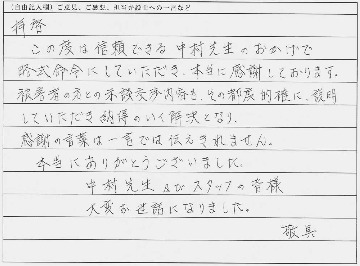 (自由記入欄) ご意見、ご要望、担当弁護士への一言など
拝啓
この度は信頼できる中村先生のおかげで
略式命令にしていただき、本当に感謝しております。
被害者の方との示談交渉内容も、その都度的確に、説明
していただき納得のいく解決となり、
感謝の言葉は一言では伝えきれません。
本当にありがとうございました。
中村先生及びスタッフの皆様
大変お世話になりました。
敬具